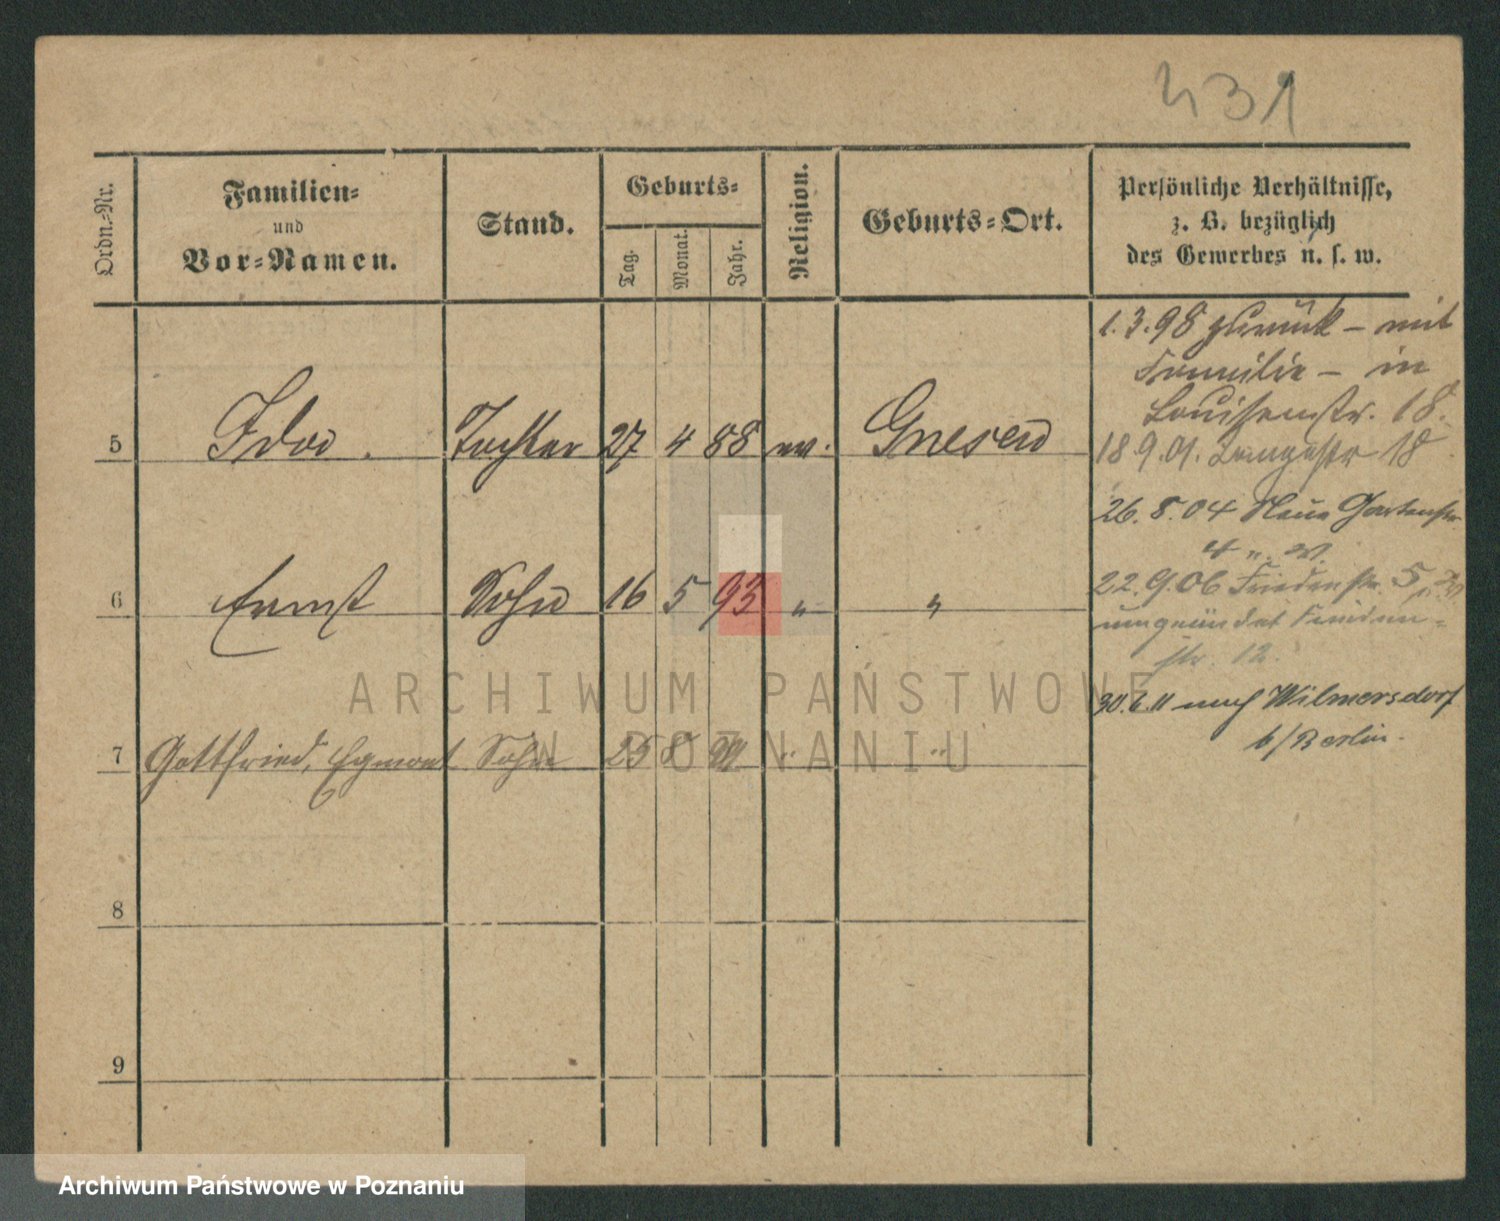 431
Ordn.-Nr.
Familien-
und
Vor-Namen.
Stand.
Geburts-
Tag.
Monat.
Jahr.
Religion.
Geburts-Ort.
Persönliche Verhältnisse,
z. B. bezüglich
des Gewerbes u. s. w.
5 Ida. Tochter 27 4 88 ev. Gnesen
6 Ernst Sohn 16 5 93 " "
7 Gottfried, Egmont Sohn 25 8 " "
8
9
1.3.98 zurück – mit
Familie – in
Louisenstr. 18.
18 9.01. Langestr 18
26.8.04 Neue Gartenstr
4
22.9.06 Friedenstr. 5
str. 12.
30.6.11 nach Wilmersdorf
b/Berlin.
ARCHIWUM PAŃSTWOWE
W POZNANIU
Archiwum Państwowe w Poznaniu